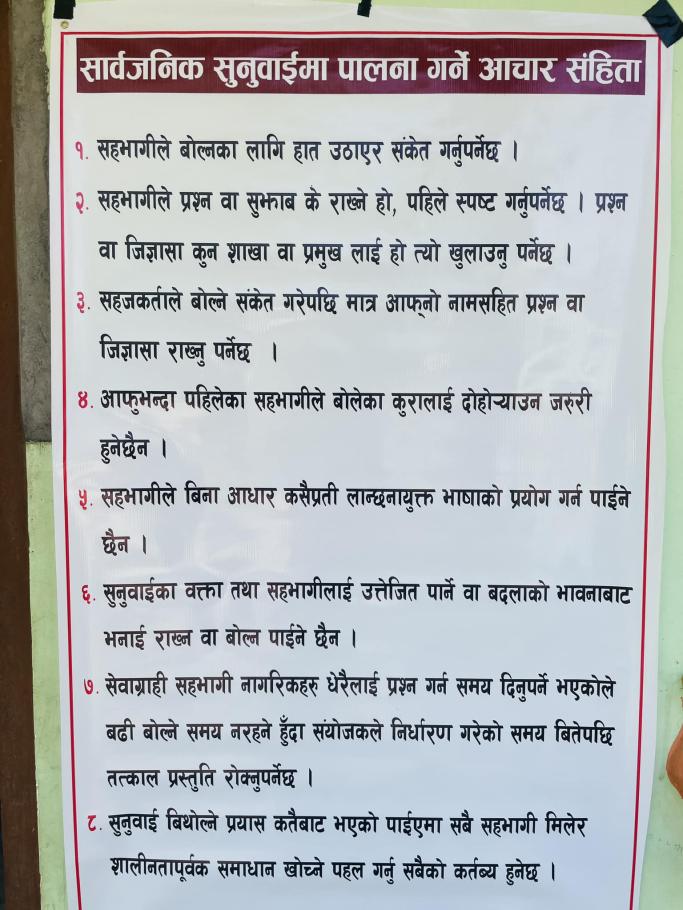 सार्वजनिक सुनुवाईमा पालना गर्ने आचार संहिता
१. सहभागीले बोल्नका लागि हात उठाएर संकेत गर्नुपर्नेछ ।
२. सहभागीले प्रश्न वा सुझाब के राख्ने हो, पहिले स्पष्ट गर्नुपर्नेछ । प्रश्न
वा जिज्ञासा कुन शाखा वा प्रमुख लाई हो त्यो खुलाउनु पर्नेछ ।
३. सहजकर्ताले बोल्ने संकेत गरेपछि मात्र आफ्नो नामसहित प्रश्न वा
जिज्ञासा राख्नु पर्नेछ ।
४. आफुभन्दा पहिलेका सहभागीले बोलेका कुरालाई दोहोऱ्याउन जरुरी
हुनेछैन ।
५. सहभागीले बिना आधार कसैप्रती लान्छनायुक्त भाषाको प्रयोग गर्न पाईने
छैन ।
६. सुनुवाईका वक्ता तथा सहभागीलाई उत्तेजित पार्ने वा बदलाको भावनाबाट
भनाई राख्न वा बोल्न पाईने छैन ।
७. सेवाग्राही सहभागी नागरिकहरु धेरैलाई प्रश्न गर्न समय दिनुपर्ने भएकोले
बढी बोल्ने समय नरहने हुँदा संयोजकले निर्धारण गरेको समय बितेपछि
तत्काल प्रस्तुति रोक्नुपर्नेछ ।
८. सुनुवाई बिथोल्ने प्रयास कतैबाट भएको पाईएमा सबै सहभागी मिलेर
शालीनतापूर्वक समाधान खोज्ने पहल गर्नु सबैको कर्तब्य हुनेछ ।